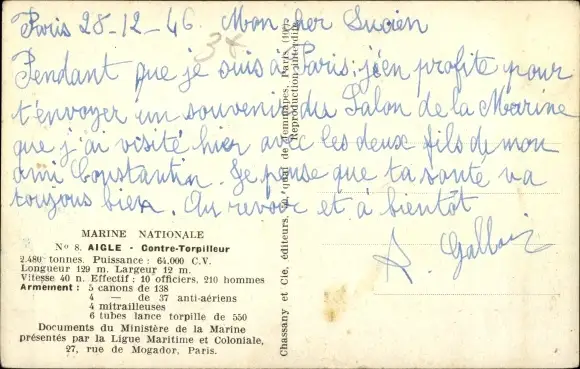 Paris 28-12-46. Mon cher Lucien
34
Pendant que je suis à Paris, j'en profite pour
t'envoyer un souvenir du Salon de la Marine
que j'ai visité hier avec les deux fils de mon
ami Constantin. Je pense que ta santé va
toujours bien. Au revoir et à bientôt
A. Gallois
MARINE NATIONALE
No 8. AIGLE - Contre-Torpilleur
2.480 tonnes. Puissance : 64.000 C.V.
Longueur 129 m. Largeur 12 m.
Vitesse 40 n. Effectif : 10 officiers, 210 hommes
Armement : 5 canons de 138
4 — de 37 anti-aériens
4 mitrailleuses
6 tubes lance torpille de 550
Documents du Ministère de la Marine
présentés par la Ligue Maritime et Coloniale,
27, rue de Mogador, Paris.
Chassany et Cie, éditeurs, quai de Jemmapes, Paris (10e)
Reproduction interdite